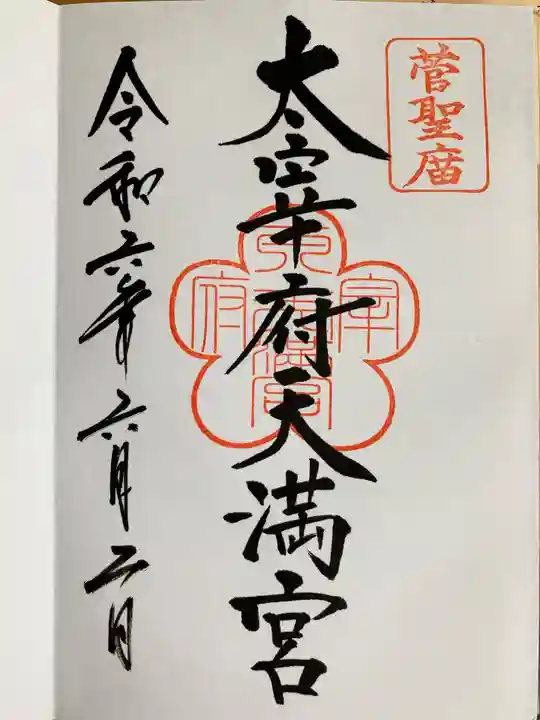 菅聖庿
太宰府天満宮
令和六年六月二日